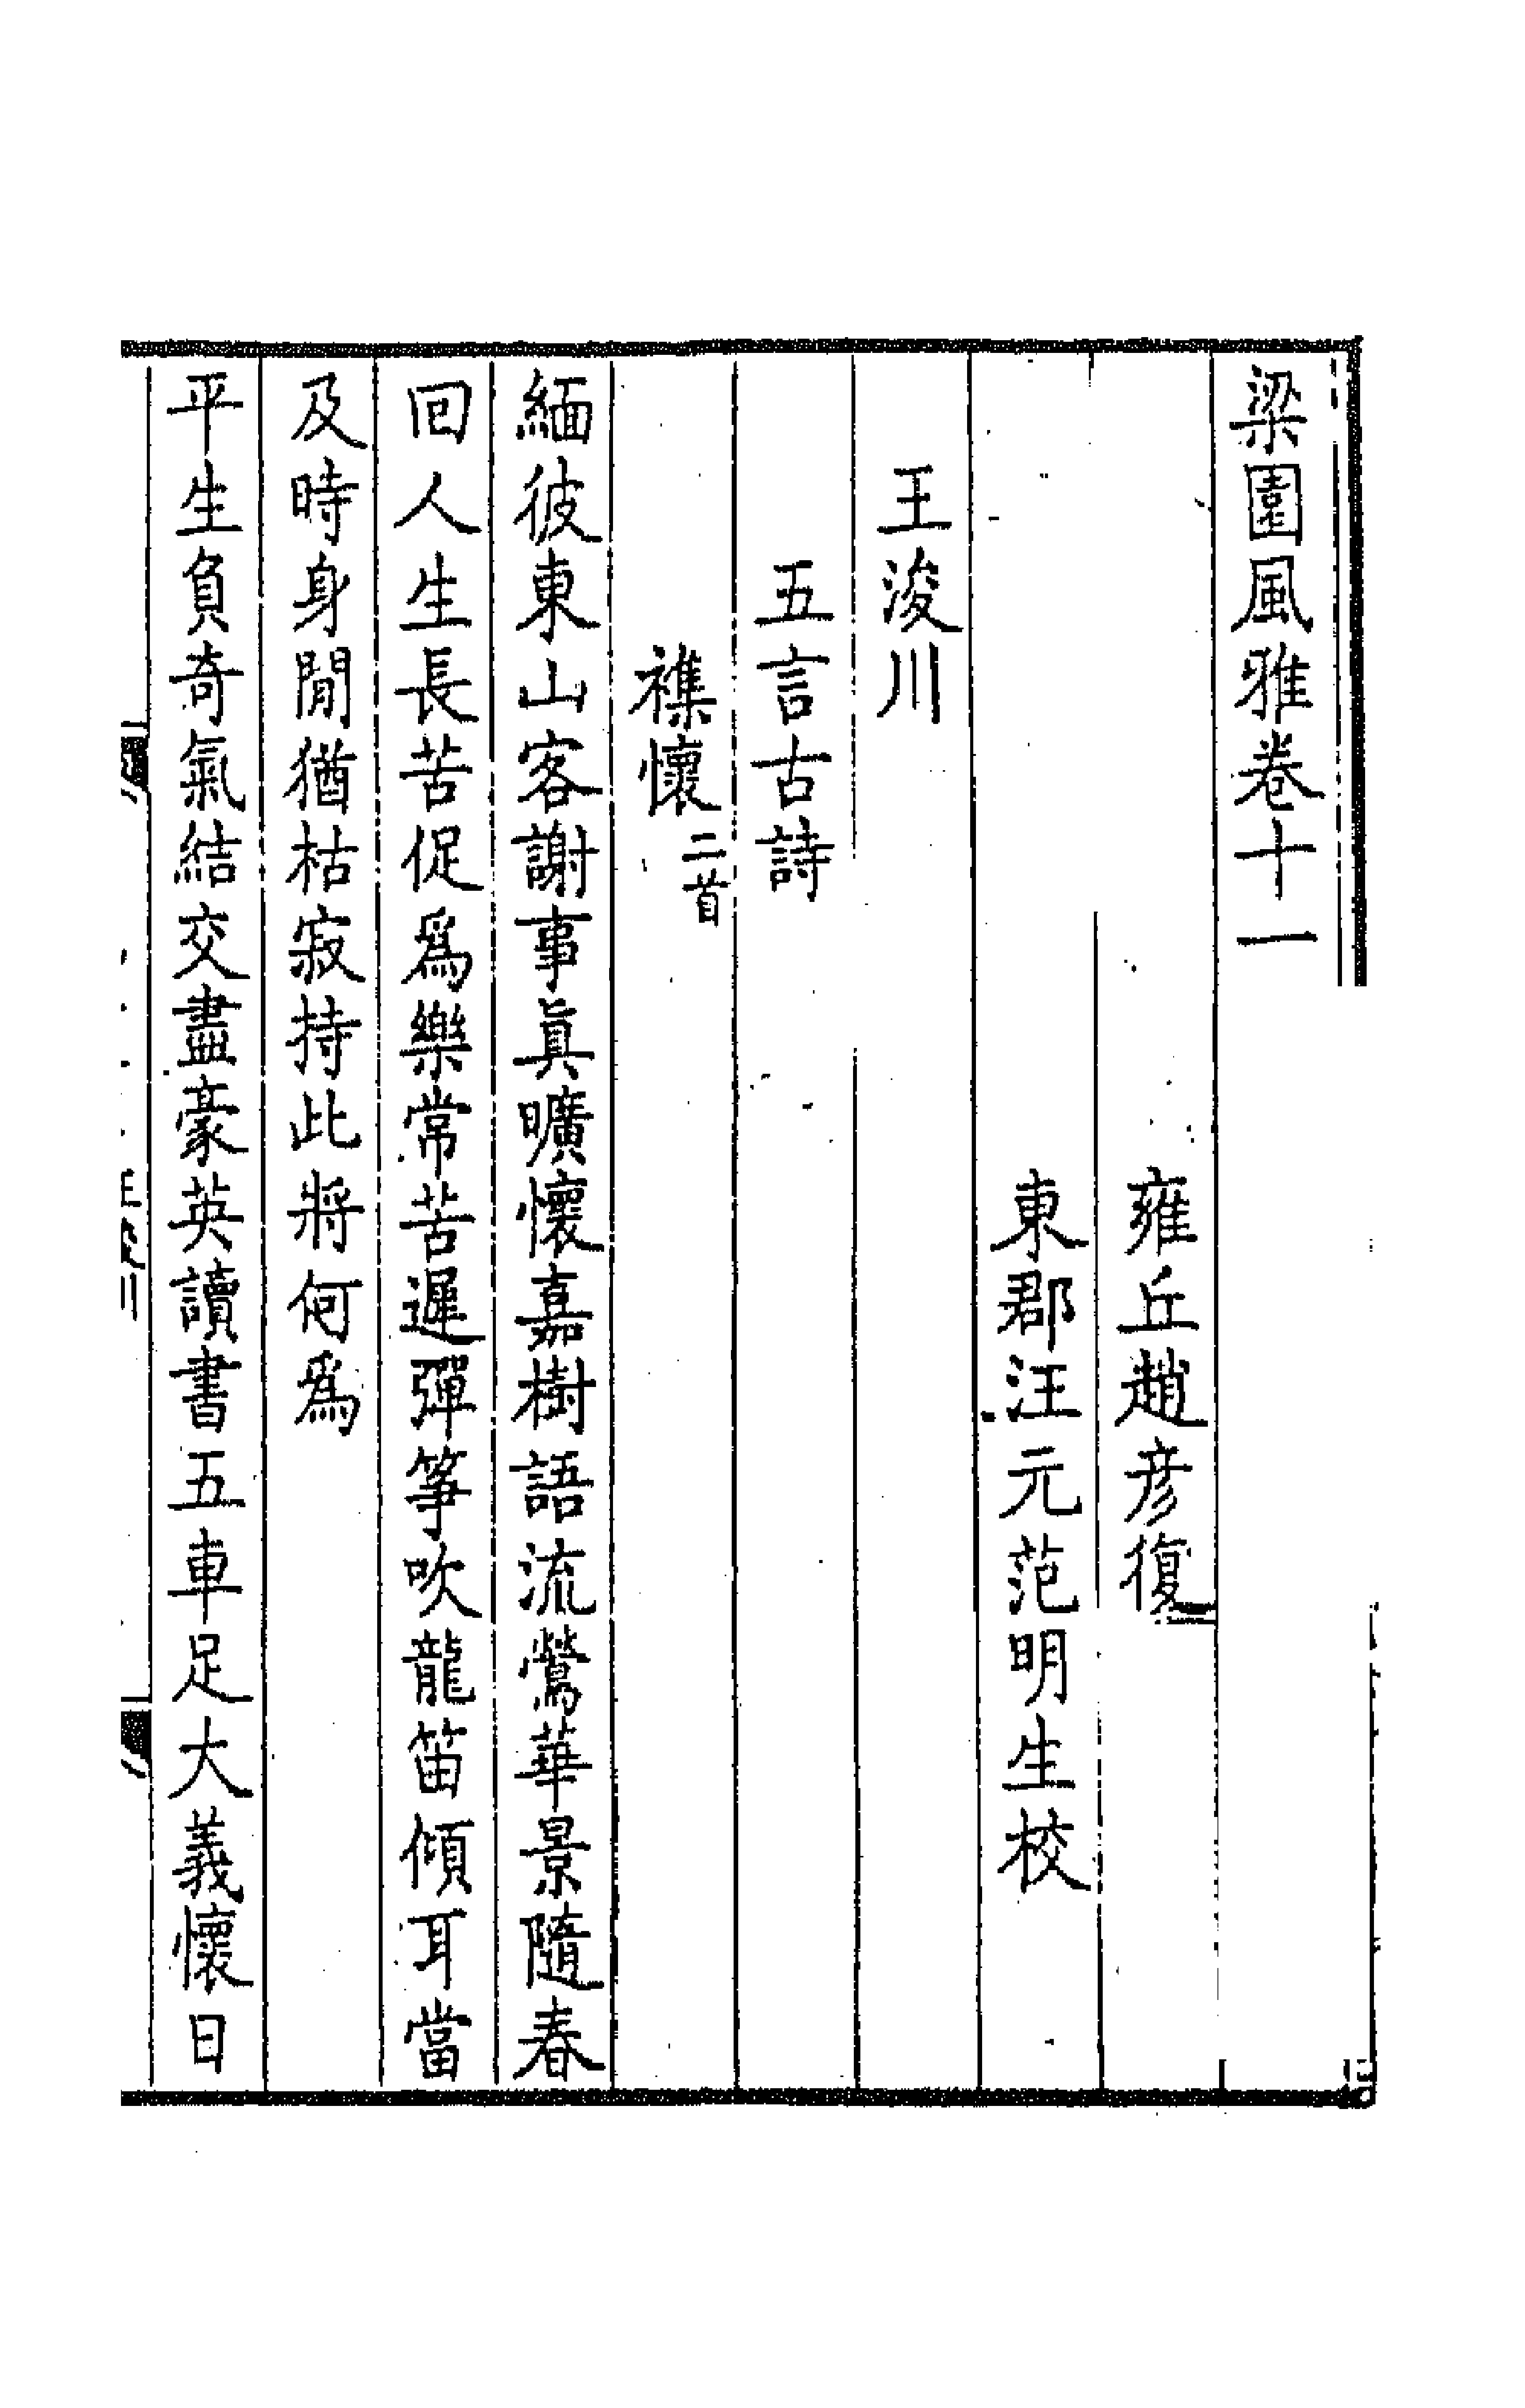 梁園風雅卷十一
雍丘趙彦復
東郡汪元范明生校
王浚川
五言古詩
襍懷二首
緬彼東山客謝事眞曠懷嘉樹語流鶯華景隨春
回人生長苦促爲樂常苦遲彈箏吹龍笛傾耳當
及時身閒猶枯寂持此將何爲
平生負奇氣結交盡豪英讀書五車足大義懷日